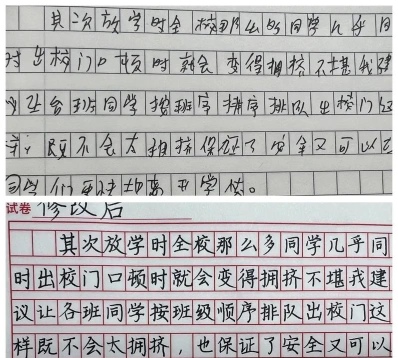 其次放学时全校那么多同学几乎同
时出校门口顿时就会变得拥挤不堪我建
议让各班同学按班序排序排队出校门这
样既不会太拥挤保证了安全又可以
同学们更快地离开学校。
试卷 修改后
其次放学时全校那么多同学几乎同
时出校门口顿时就会变得拥挤不堪我建
议让各班同学按班级顺序排队出校门这
样既不会太拥挤，也保证了安全又可以